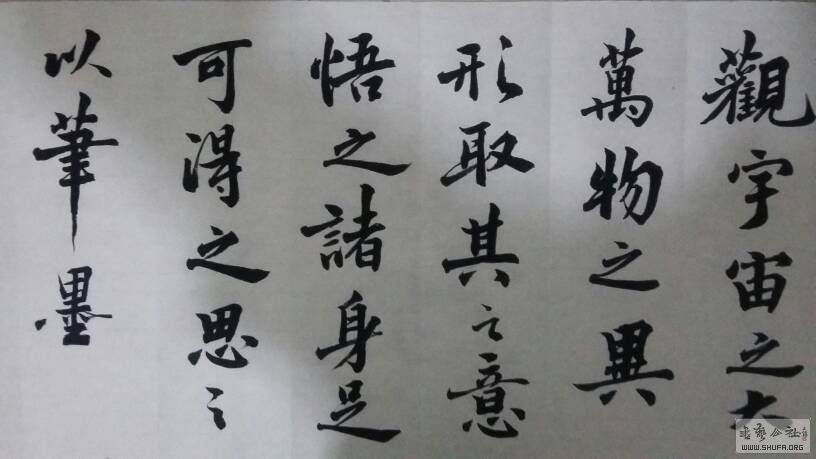 觀宇宙之大
萬物之異
形取其之意
悟之諸身足
可得之思之
以筆墨
書藝公社
WWW.SHUFA.ORG